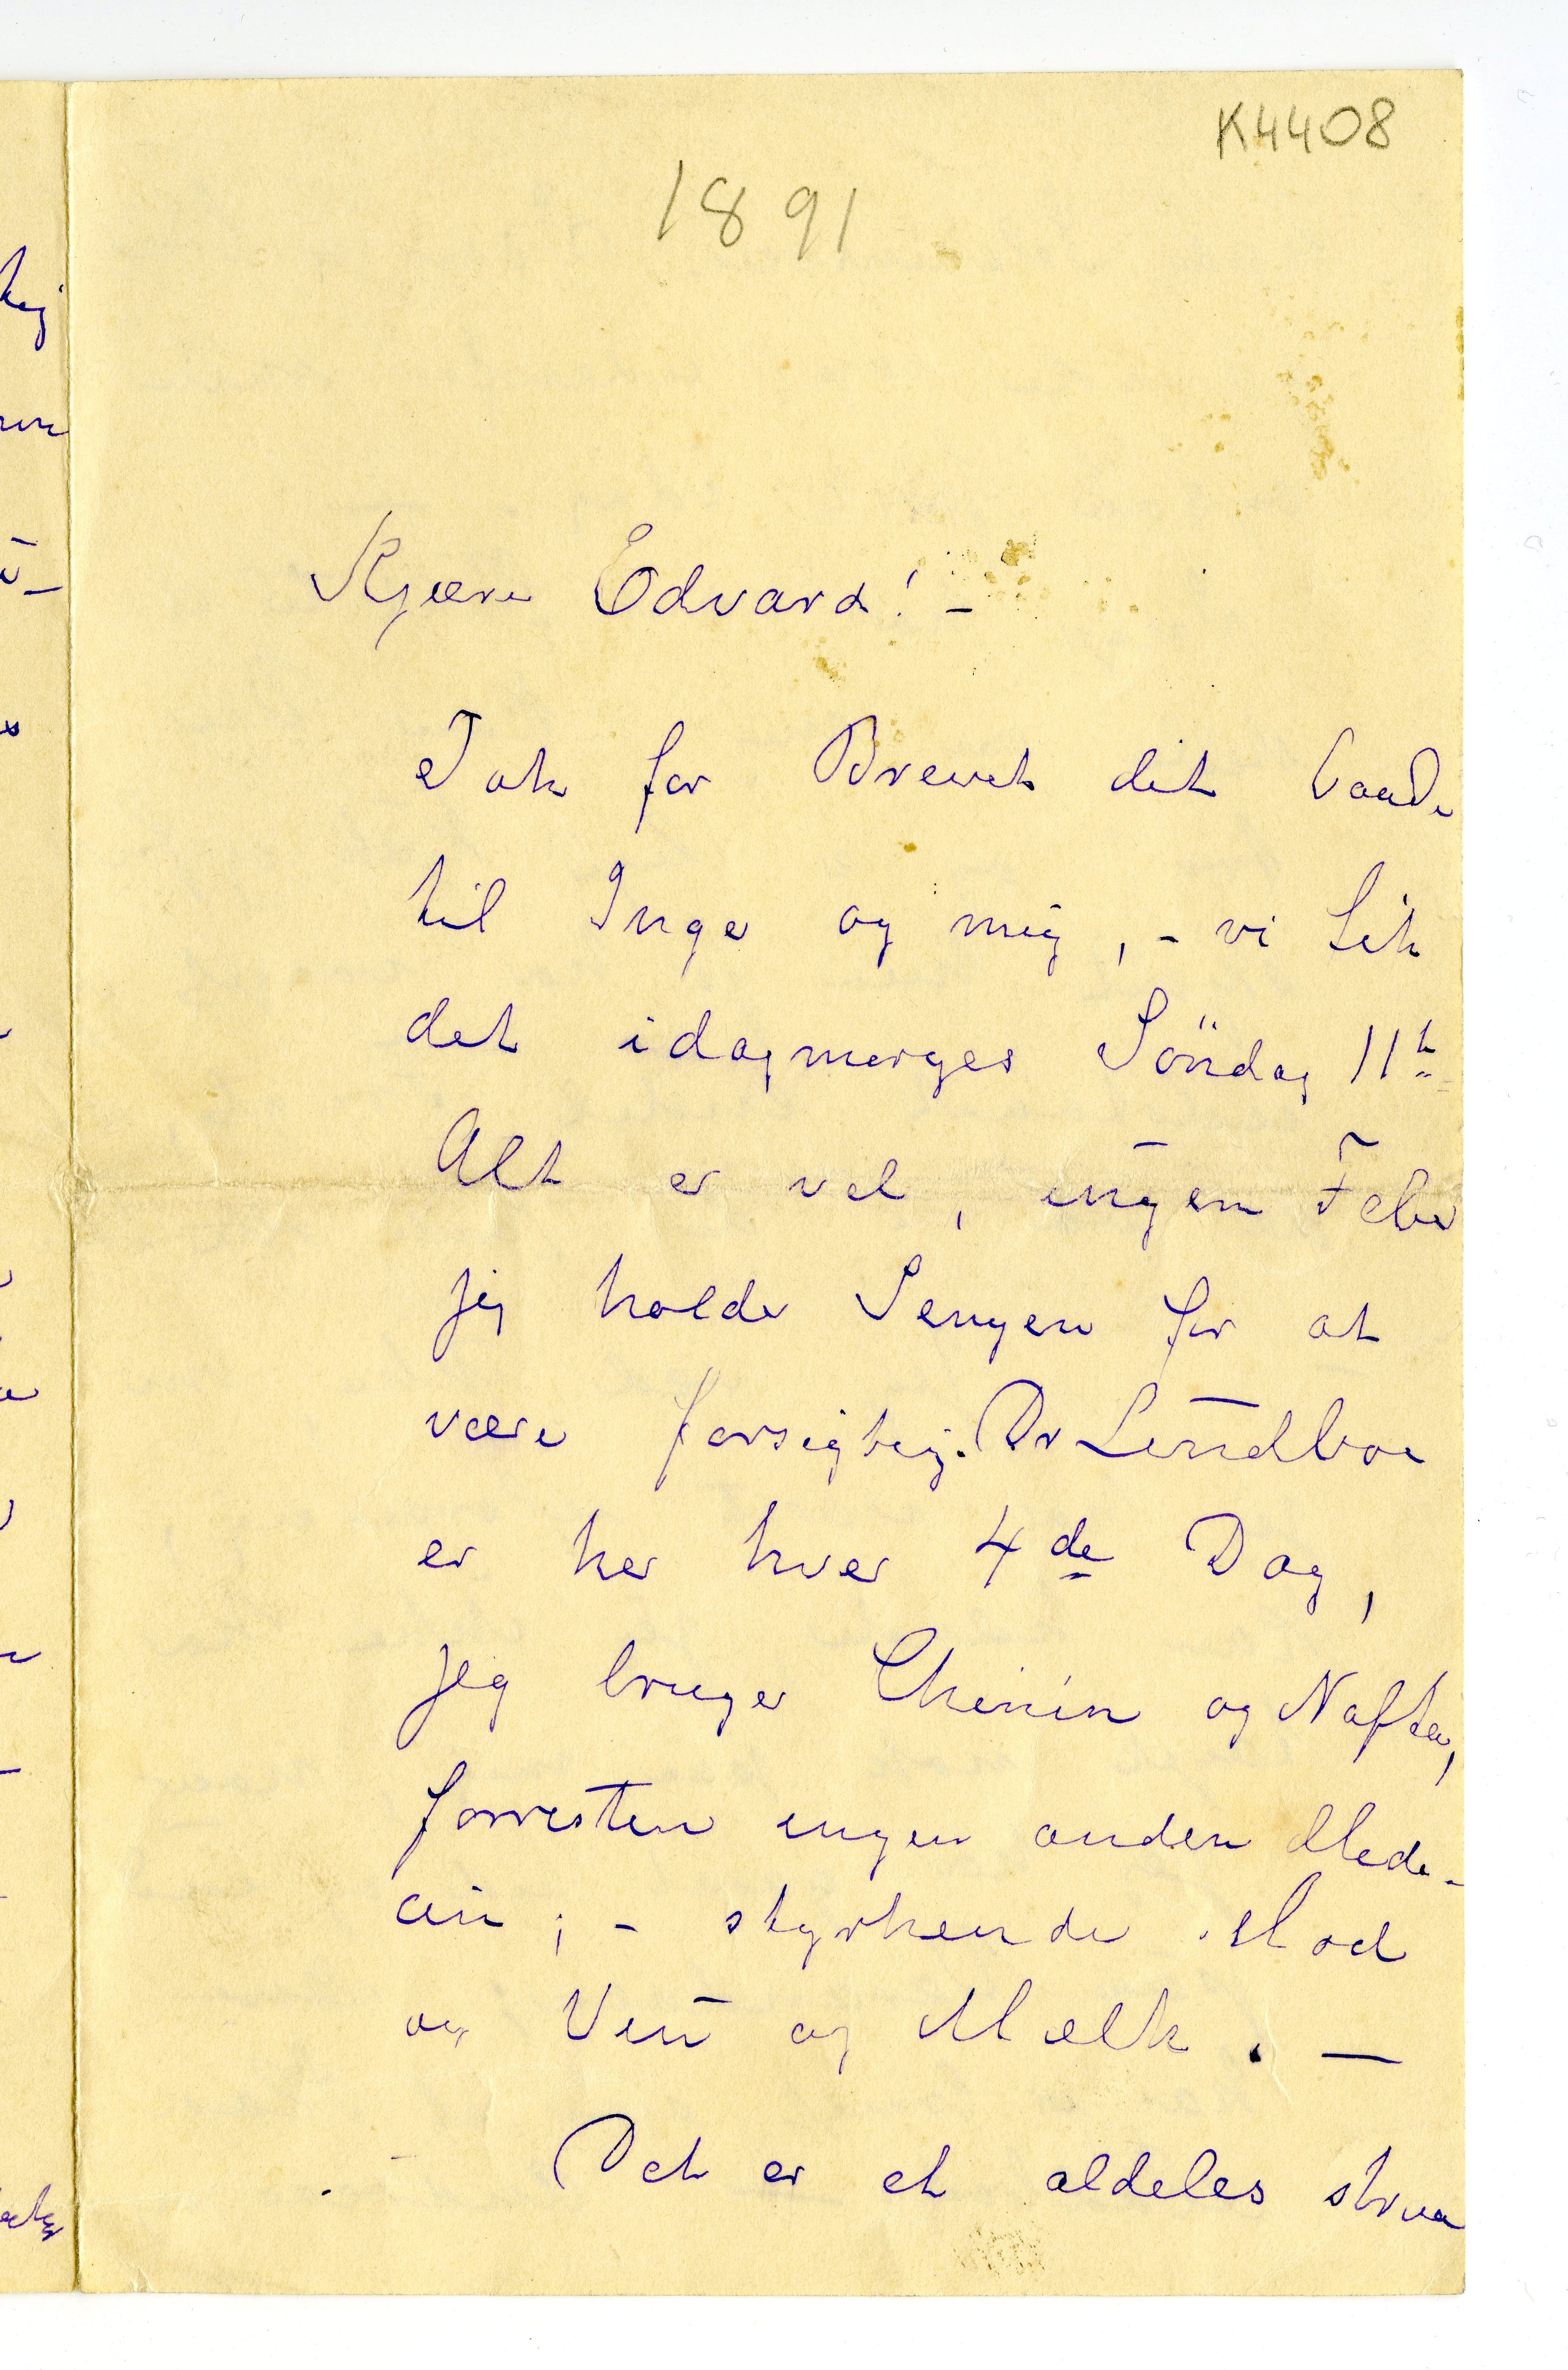 K4408
1891
Kjære Edvard! –
Tak for Brevet dit baade
til Inger og mig, – vi fik
det idagmorges Söndag 11t
Alt er vel, ingen Feber
jeg holder Sengen for at
være forsigtig. Dr Lindboe
er her hver 4de Dag,
jeg bruger Chinin og Nafta,
forresten ingen anden Medi-
cin; – styrkende Mad
og Vin og Mælk. —
Det er et aldeles straa